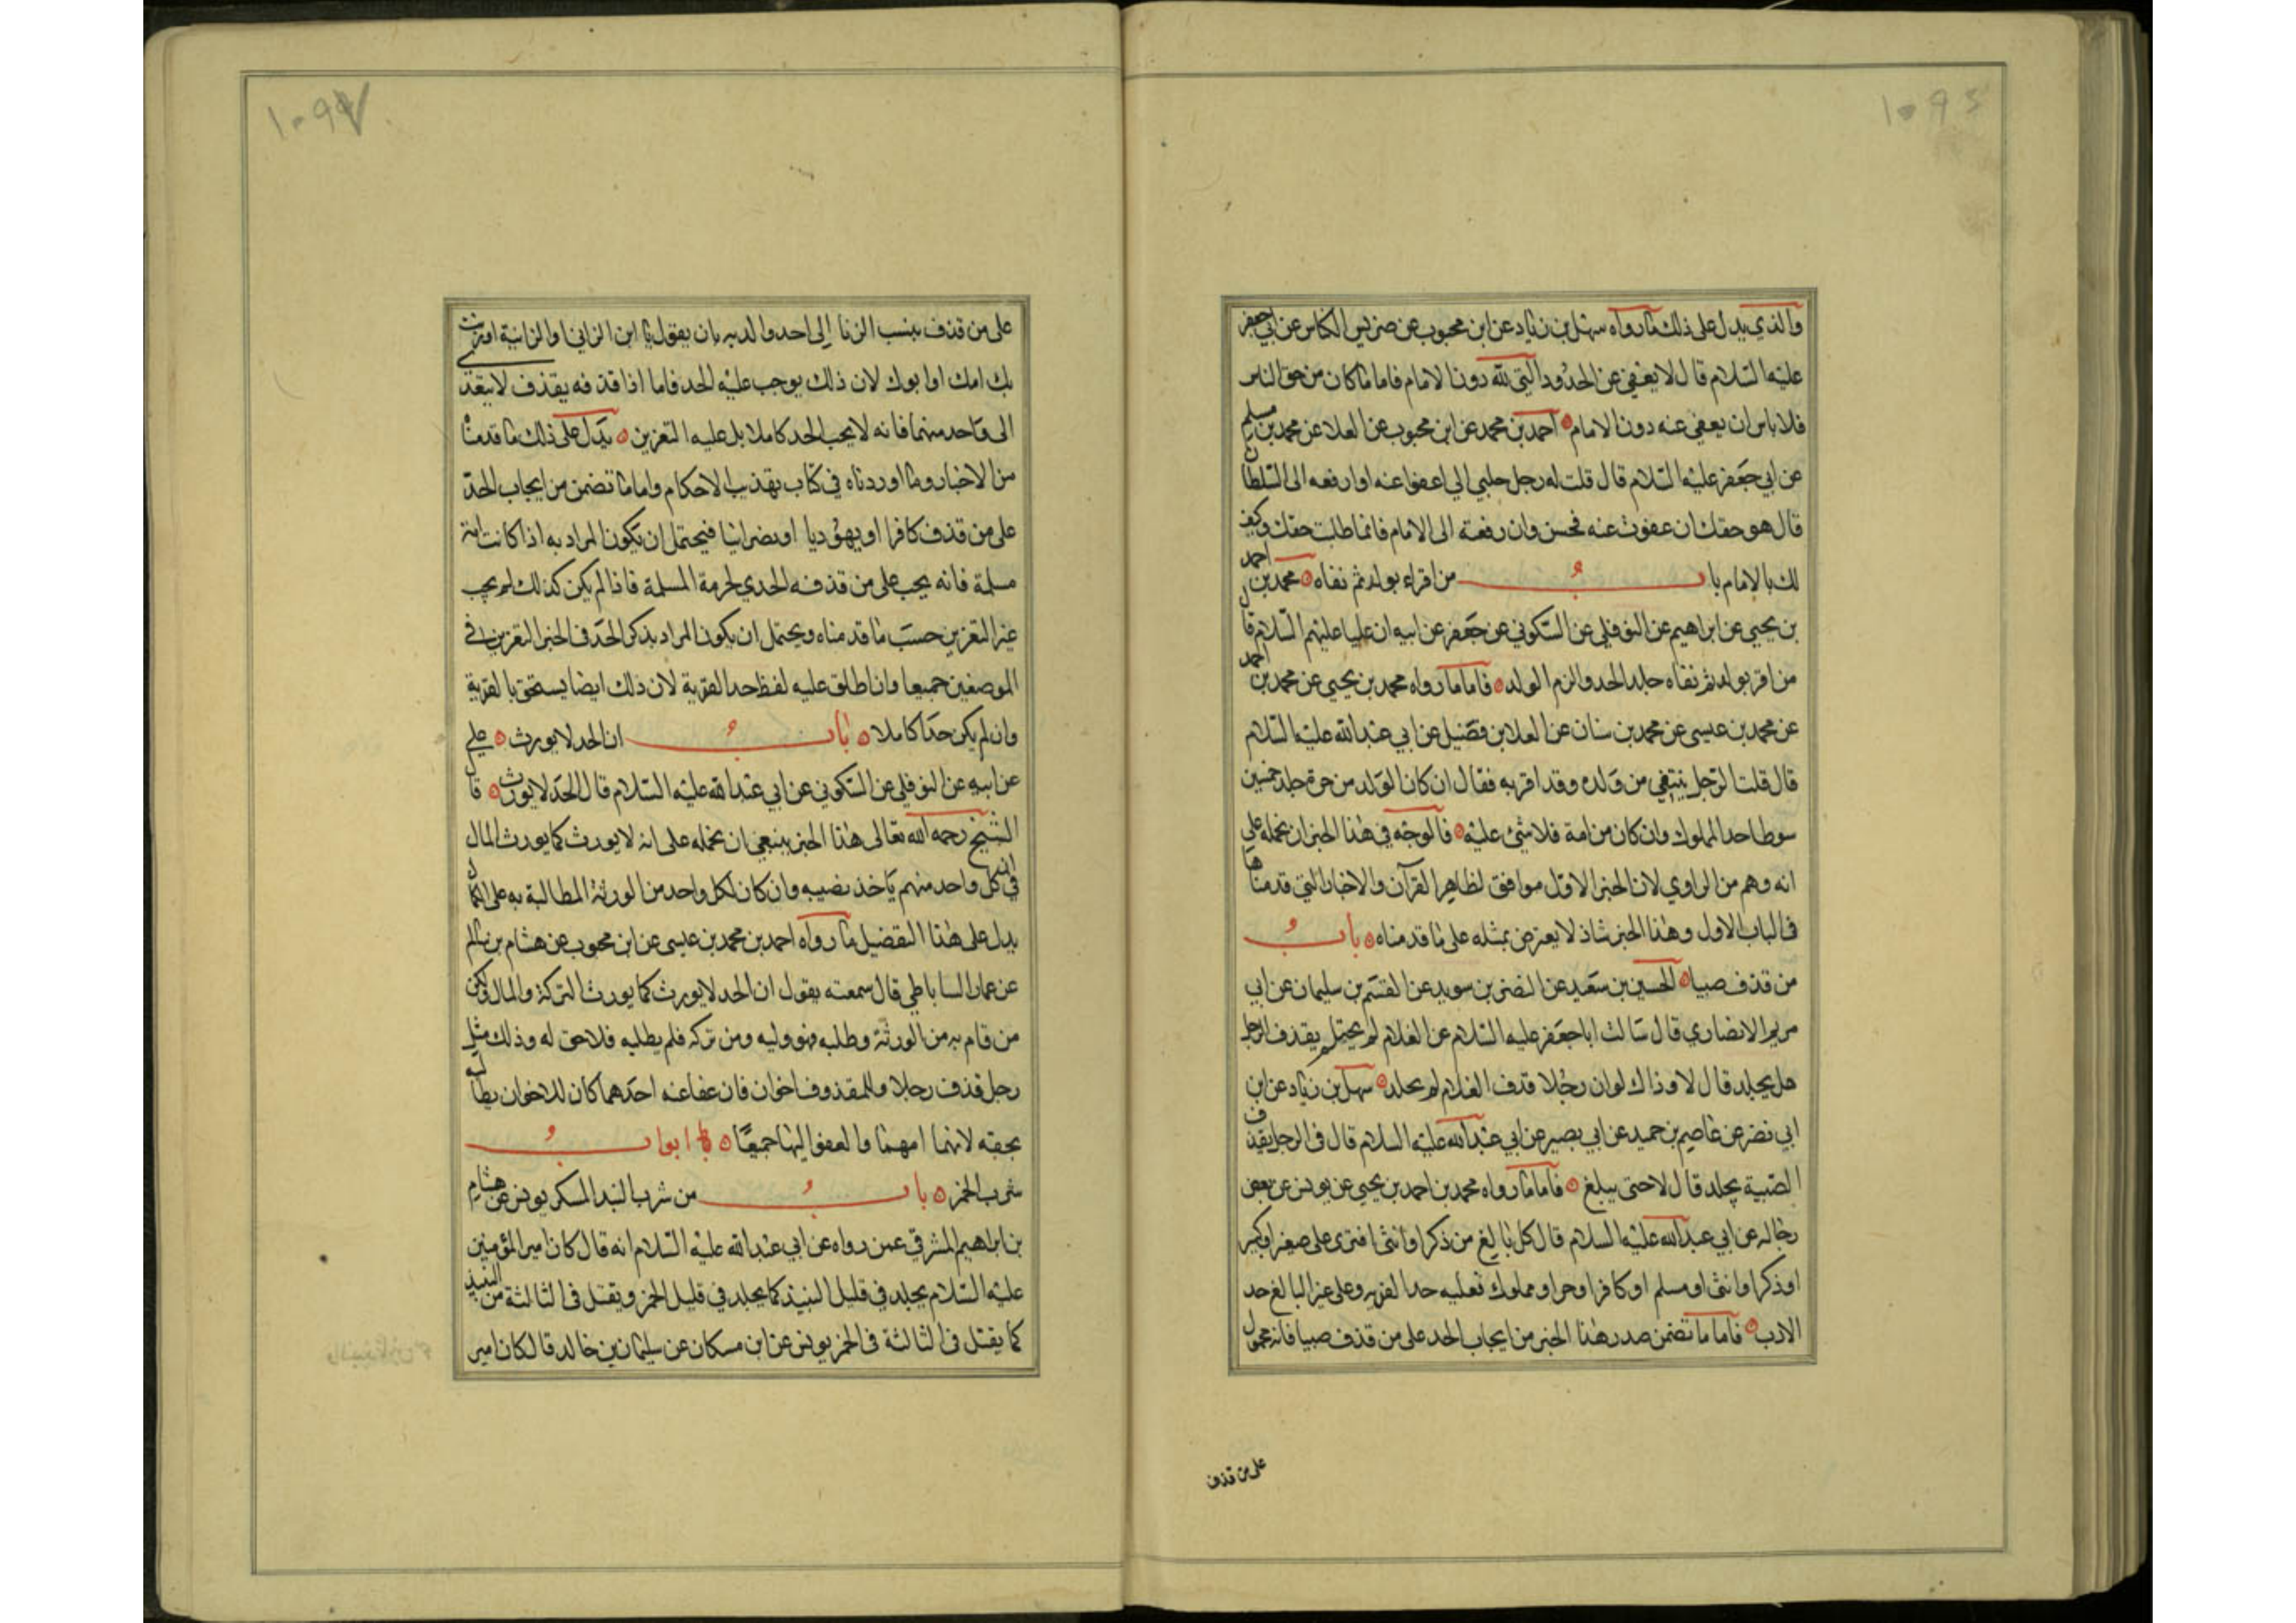 والذي يدل على ذلك ما رواه سهل بن زياد عن ابن محبوب عن ضريس الكناسي عن ابي جعفر
عليه السلام قال لا يعفى عن الحدود التي لله دون الامام فاما ما كان من حق الناس
فلا باس ان يعفى عنه دون الامام احمد بن محمد عن ابن محبوب عن العلا عن محمد بن مسلم
عن ابي جعفر عليه السلام قال قلت له رجل جنى الي اعفوا عنه او ارفعه الى السلطان
قال هو حقك ان عفوت عنه فحسن وان رفعته الى الامام فانما طلبت حقك وكيف
لك بالامام باب من اقر بولد ثم نفاه محمد بن احمد
بن يحيى عن ابراهيم عن النوفلي عن السكوني عن جعفر عن ابيه ان عليا عليهم السلام قال
من اقر بولد ثم نفاه جلد الحد والزم الولد فاما ما رواه محمد بن يحيى عن محمد بن احمد
عن محمد بن عيسى عن محمد بن سنان عن العلا بن فضيل عن ابي عبد الله عليه السلام
قال قلت الرجل ينتفي من ولده وقد اقر به فقال ان كان الولد من حرة جلد خمسين
سوطا حد المملوك وان كان من امة فلا شئ عليه فالوجه في هذا الخبر ان نحمله على
انه وهم من الراوي لان الخبر الاول موافق لظاهر القرآن والاخبار التي قدمناها
في الباب الاول وهذا الخبر شاذ لا يعترض بمثله على ما قدمناه باب
من قذف صبيا الحسين بن سعيد عن النضر بن سويد عن القسم بن سليمان عن ابي
مريم الانصاري قال سالت ابا جعفر عليه السلام عن الغلام لم يحتلم يقذف الرجل
هل يجلد قال لا وذاك لو ان رجلا قذف الغلام لم يجلد سهل بن زياد عن ابن
ابي نصر عن عاصم بن حميد عن ابي بصير عن ابي عبد الله عليه السلام قال في الرجل يقذف
الصبية يجلد قال لا حتى يبلغ فاما ما رواه محمد بن احمد بن يحيى عن يونس عن بعض
رجاله عن ابي عبد الله عليه السلام قال كل بالغ من ذكر او انثى افترى على صغير او كبير
او ذكر او انثى او مسلم او كافر او حر او مملوك فعليه حد الفريه وعلى غير البالغ حد
الادب فاما ما تضمن صدر هذا الخبر من ايجاب الحد على من قذف صبيا فانه محمول
على من قذف
على من قذف بنسب الزنا الى احد والديه بان يقول يا ابن الزاني او الزانية او زنت
بك امك او ابوك لان ذلك يوجب عليه الحد فاما اذا قذفه بقذف لا يتعدى
الى واحد منهما فانه لا يجب الحد كاملا بل عليه التعزير يدل على ذلك ما قدمنا
من الاخبار وما اوردناه في كتاب تهذيب الاحكام واما ما تضمن من ايجاب الحد
على من قذف كافرا او يهوديا او نصرانيا فيحتمل ان يكون المراد به اذا كانت امه
مسلمة فانه يجب على من قذفه الحد لحرمة المسلمة فاذا لم يكن كذلك لم يجب
غير التعزير حسب ما قدمناه ويحتمل ان يكون المراد بذكر الحد في الخبر التعزير في
الموضعين جميعا وان اطلق عليه لفظ حد الفرية لان ذلك ايضا يستحق بالفرية
وان لم يكن حدا كاملا باب ان الحد لا يورث علي
عن ابيه عن النوفلي عن السكوني عن ابي عبد الله عليه السلام قال الحد لا يورث قال
الشيخ رحمه الله تعالى هذا الخبر ينبغي ان نحمله على انه لا يورث كما يورث المال
في ان كل واحد منهم ياخذ نصيبه وان كان لكل واحد من الورثة المطالبة به على الكمال
يدل على هذا التفصيل ما رواه احمد بن محمد بن عيسى عن ابن محبوب عن هشام بن سالم
عن عمار الساباطي قال سمعته يقول ان الحد لا يورث كما يورث التركة والمال ولكن
من قام به من الورثة وطلبه فهو وليه ومن تركه فلم يطلبه فلا حق له وذلك مثل
رجل قذف رجلا وللمقذوف اخوان فان عفا عنه احدهما كان للاخر ان يطالبه
بحقه لانها امهما والعفو اليهما جميعا ابواب
شرب الخمر باب من شرب النبيذ المسكر يونس عن هشام
بن ابراهيم المشرقي عمن رواه عن ابي عبد الله عليه السلام انه قال كان امير المؤمنين
عليه السلام يجلد في قليل النبيذ كما يجلد في قليل الخمر ويقتل في الثالثة من النبيذ
كما يقتل في الثالثة في الخمر يونس عن ابن مسكان عن سليمان بن خالد قال كان امير